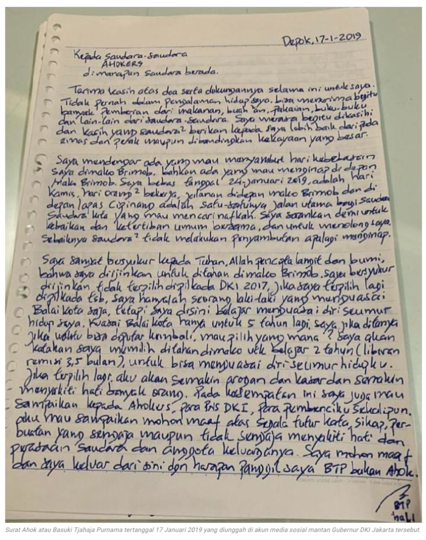 Depok, 17-1-2019
Kepada Saudara-saudara
AHOKERS
dimanapun saudara berada.
Terima kasih atas doa serta dukungannya selama ini untuk saya.
Tidak pernah dalam pengalaman hidup saya. bisa menerima begitu
banyak Pemberian dari makanan, buah²an, pakaian, buku-buku
dan lain-lain dari Saudara Saudara. Saya merasa begitu dikasihi
dan kasih yang saudara² berikan kepada saya lebih baik daripada
emas dan perak maupun dibandingkan kekayaan yang besar.
Saya mendengar ada yang mau menyambut hari kebebasan
Saya dimako Brimob. bahkan ada yang mau menginap di depan
Mako Brimob. Saya bebas tanggal 24 januari 2019, adalah hari
Kamis, hari orang² bekerja, jalanan didepan mako Brimob dan di
depan lapas Cipinang adalah satu-satunya jalan utama bagi saudara
Saudara² kita yang mau mencari nafkah. Saya sarankan demi untuk
kebaikan dan ketertiban umum bersama, dan untuk menolong saya,
Sebaiknya saudara² tidak melakukan penyambutan apalagi menginap.
Saya sangat bersyukur kepada Tuhan, Allah pencipta langit dan bumi,
bahwa saya diijinkan untuk ditahan dimako Brimob. Saya bersyukur
diijinkan tidak terpilih di pilkada DKI 2017, jika saya terpilih lagi
di pilkada tsb, saya hanyalah seorang laki-laki yang menguasai
Balai kota saja, tetapi saya disini belajar menguasai diri seumur
hidup saya. Kuasai Balai kota hanya untuk 5 tahun lagi. Saya jika ditanya
jika waktu bisa diputar kembali, mau pilih yang mana? Saya akan
katakan saya memilih ditahan dimako utk belajar 2 tahun (liburan
remisi 3,5 bulan), untuk bisa menguasai diri seumur hidupku.
Jika terpilih lagi, aku akan semakin arogan dan kasar dan semakin
menyakiti hati banyak orang. Pada kesempatan ini saya juga mau
sampaikan kepada Ahokers, Para PNS DKI, Para pembenciku sekalipun,
aku mau sampaikan mohon maaf atas segala tutur kata, sikap, per-
buatan yang sengaja maupun tidak sengaja menyakiti hati dan
perasaan saudara dan anggota keluarganya. Saya mohon maaf
dan saya keluar dari sini dgn harapan panggil saya BTP bukan Ahok.
BTP
Surat Ahok atau Basuki Tjahaja Purnama tertanggal 17 Januari 2019 yang diunggah di akun media sosial mantan Gubernur DKI Jakarta tersebut.